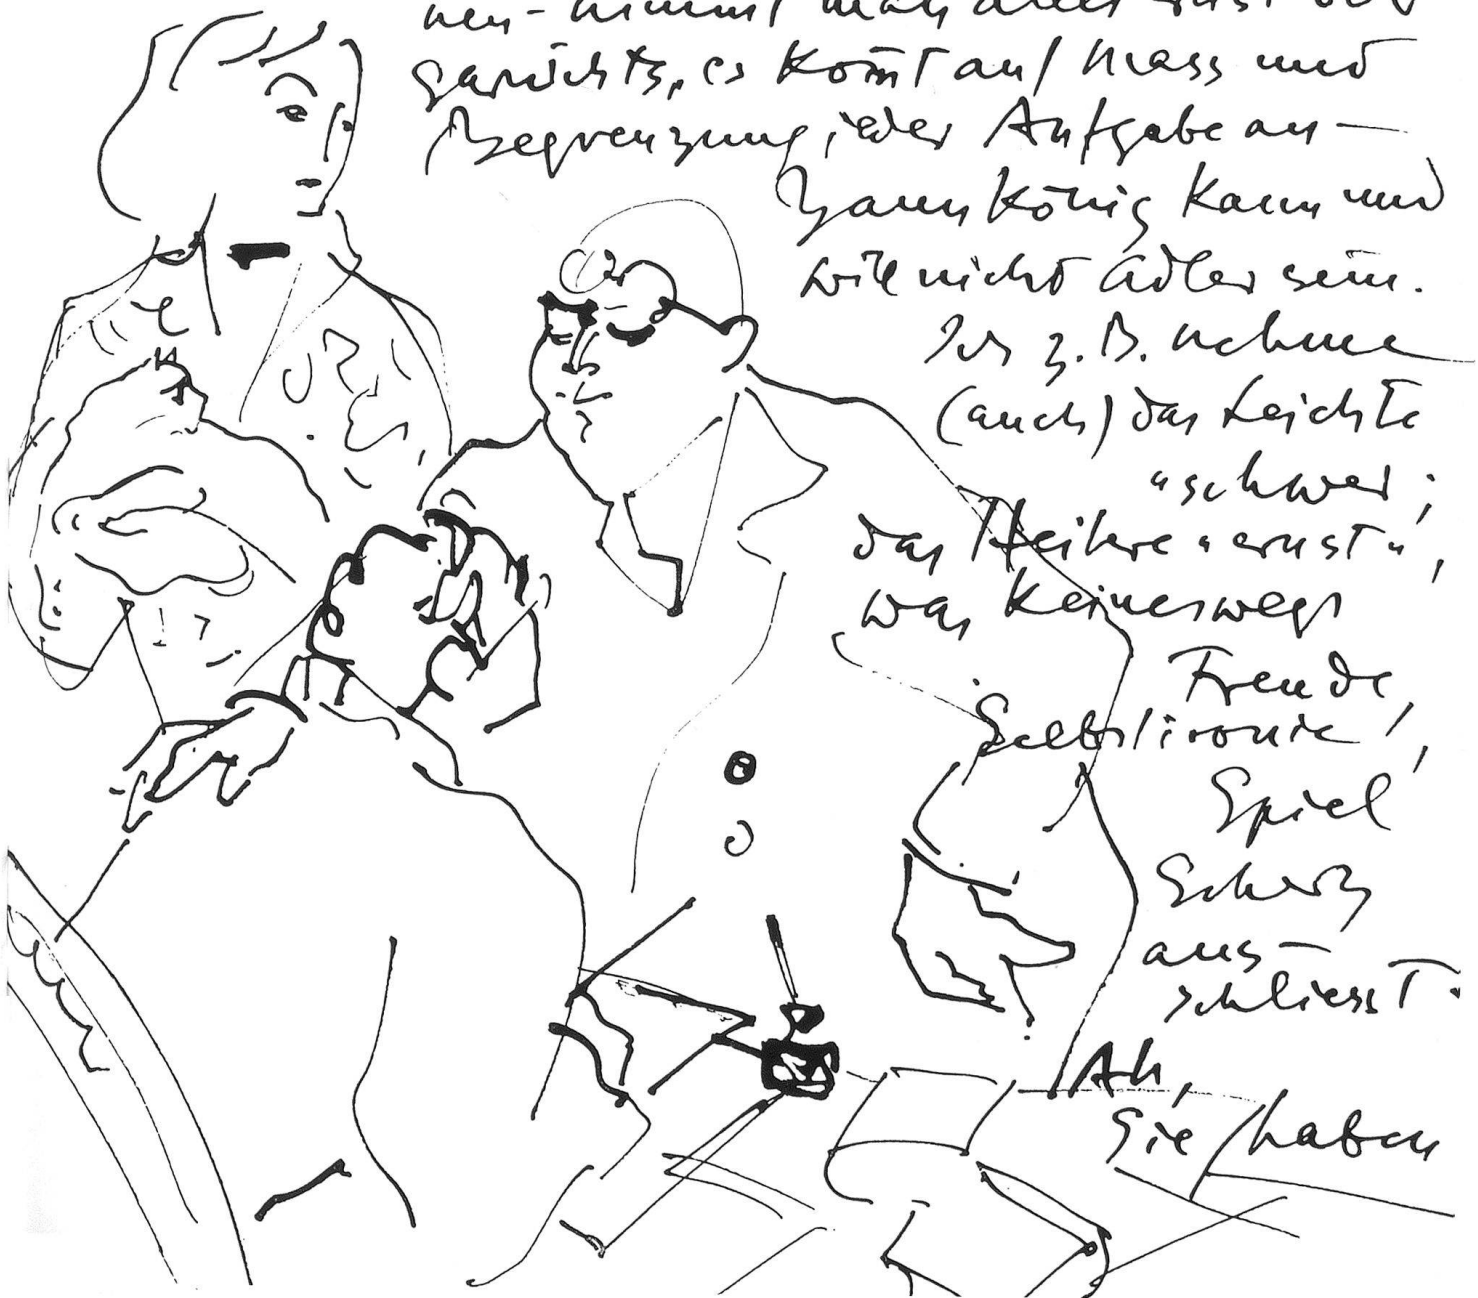 nen - nimmt man alles ernst oder
garnichts, es kom̄t auf Mass und
Begrenzung jeder Aufgabe an —
Zaunkönig kann und
will nicht Adler sein.
Ich z.B. nehme
(auch) das Leichte
"schwer;
das Heitere "ernst",
was keineswegs
Freude,
Selbstironie,
Spiel
Scherz
aus-
schliesst.
Ah,
Sie haben